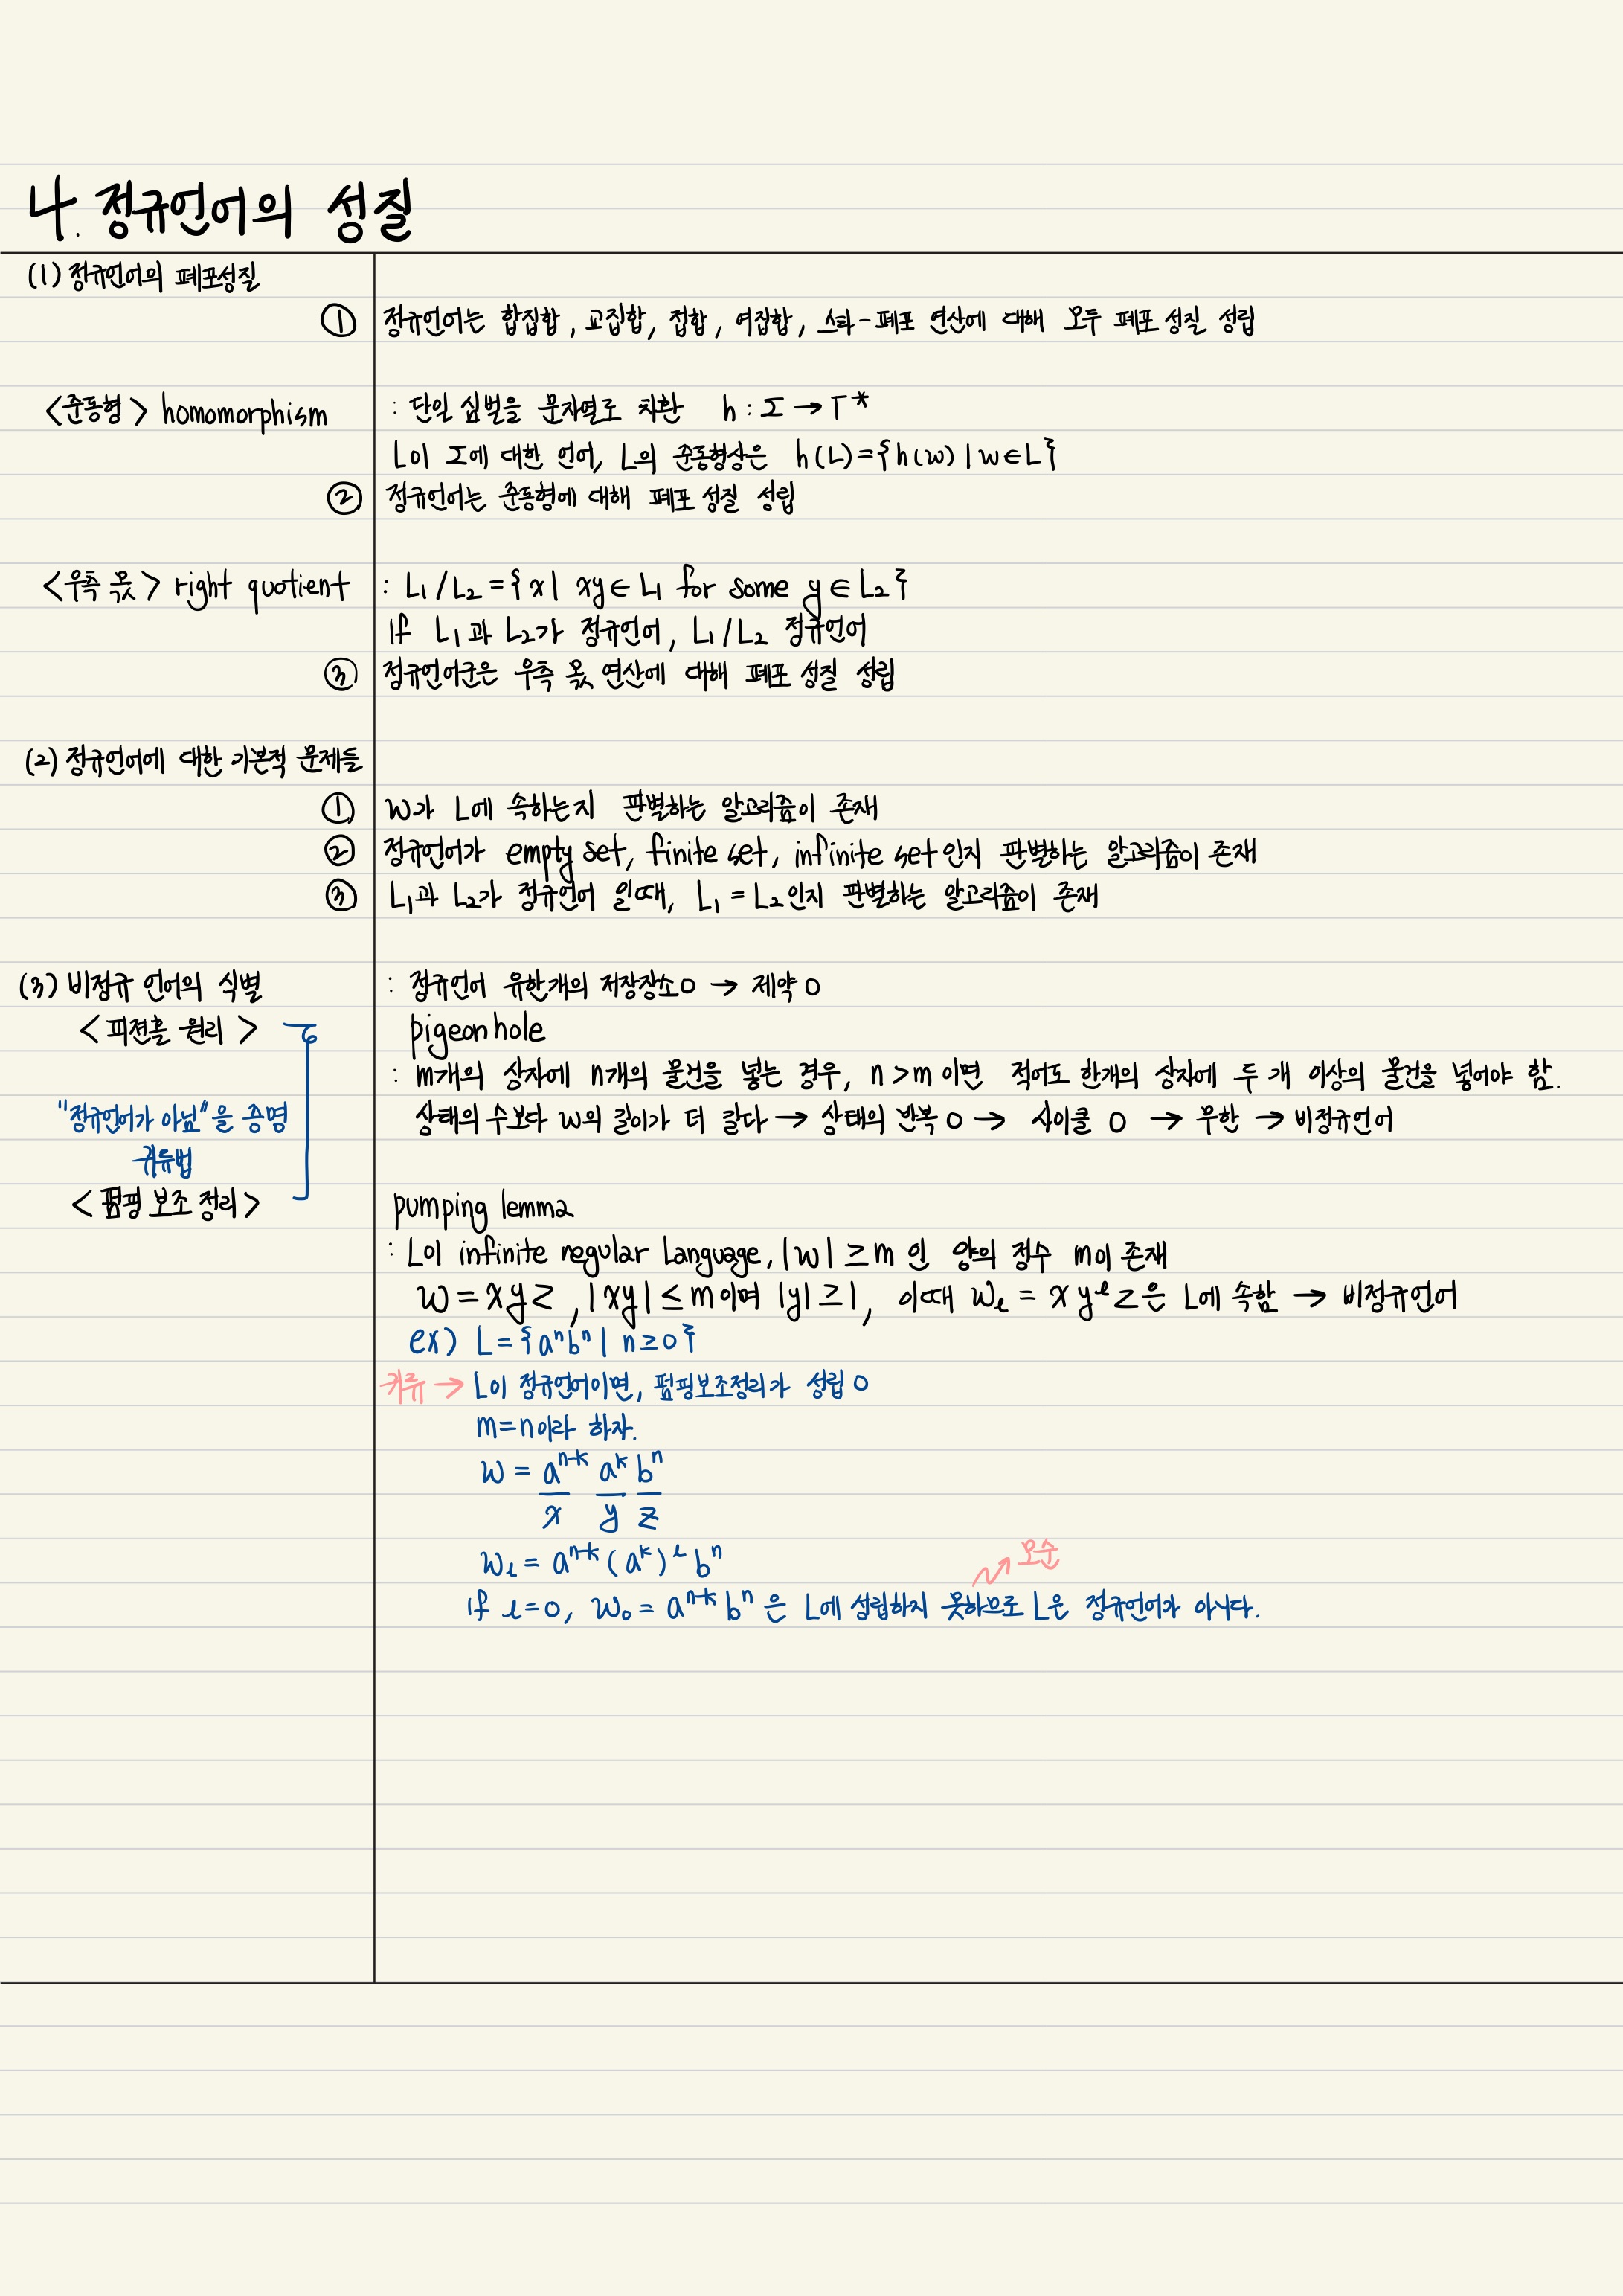 4. 정규언어의 성질
(1) 정규언어의 폐포성질
① 정규언어는 합집합, 교집합, 접합, 여집합, 스타-폐포 연산에 대해 모두 폐포 성질 성립
<준동형> homomorphism : 단일 심벌을 문자열로 치환 h : Σ → Γ*
L이 Σ에 대한 언어, L의 준동형상은 h(L)={h(w) | w∈L}
② 정규언어는 준동형에 대해 폐포 성질 성립
<우측 몫> right quotient : L₁/L₂={x| xy∈L₁ for some y∈L₂}
If L₁과 L₂가 정규언어, L₁/L₂ 정규언어
③ 정규언어군은 우측 몫 연산에 대해 폐포 성질 성립
(2) 정규언어에 대한 기본적 문제들
① w가 L에 속하는지 판별하는 알고리즘이 존재
② 정규언어가 empty set, finite set, infinite set인지 판별하는 알고리즘이 존재
③ L₁과 L₂가 정규언어 일때, L₁ = L₂인지 판별하는 알고리즘이 존재
(3) 비정규 언어의 식별 : 정규언어 유한개의 저장장소O → 제약O
<피전홀 원리> pigeonhole
: m개의 상자에 n개의 물건을 넣는 경우, n>m이면 적어도 한개의 상자에 두 개 이상의 물건을 넣어야 함.
"정규언어가 아님"을 증명 상태의 수보다 w의 길이가 더 길다 → 상태의 반복 O → 사이클 O → 무한 → 비정규언어
귀류법
<펌핑 보조 정리> pumping lemma
: L이 infinite regular Language, |w| ≥ m 인 양의 정수 m이 존재
w = xyz, |xy| ≤ m이며 |y| ≥ 1, 이때 wᵢ = xyⁱz은 L에 속함 → 비정규언어
ex) L={aⁿbⁿ | n≥0}
귀류 → L이 정규언어이면, 펌핑보조정리가 성립 O
m=n이라 하자.
w = aⁿ⁻ᵏ aᵏ bⁿ
x y z
wᵢ = aⁿ⁻ᵏ (aᵏ)ⁱ bⁿ
모순
if i=0, w₀ = aⁿ⁻ᵏ bⁿ은 L에 성립하지 못하므로 L은 정규언어가 아니다.